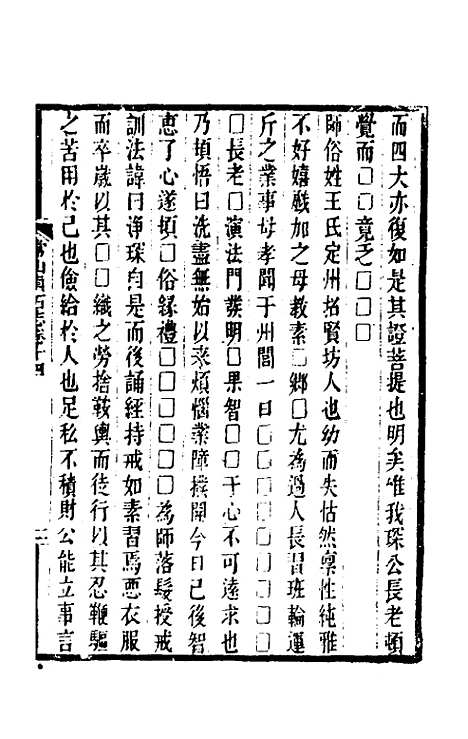 而四大亦復如是其證菩提也明矣惟我琛公長老頓
覺而□□竟乏□□□
師俗姓王氏定州招賢坊人也幼而失怙然稟性純雅
不好嬉戲加之母教素□鄉□尤為過人長習班輪運
斤之業事母孝聞于州閭一日□□□□□□□□□
□長老□演法門業明□果智□□于心不可遠求也
乃頓悟曰洗盡無始以來煩惱業障撲開今日已後智
恵了心遂頓□俗緣禮□□□□□□為師落髮授戒
訓法諱曰淨琛自是而後誦經持戒如素習焉惡衣服
而卒歲以其□□織之勞捨鞍輿而徒行以其忍鞭驅
之苦用於己也儉給於人也足私不積財公能立事言
常山貞石志卷十四